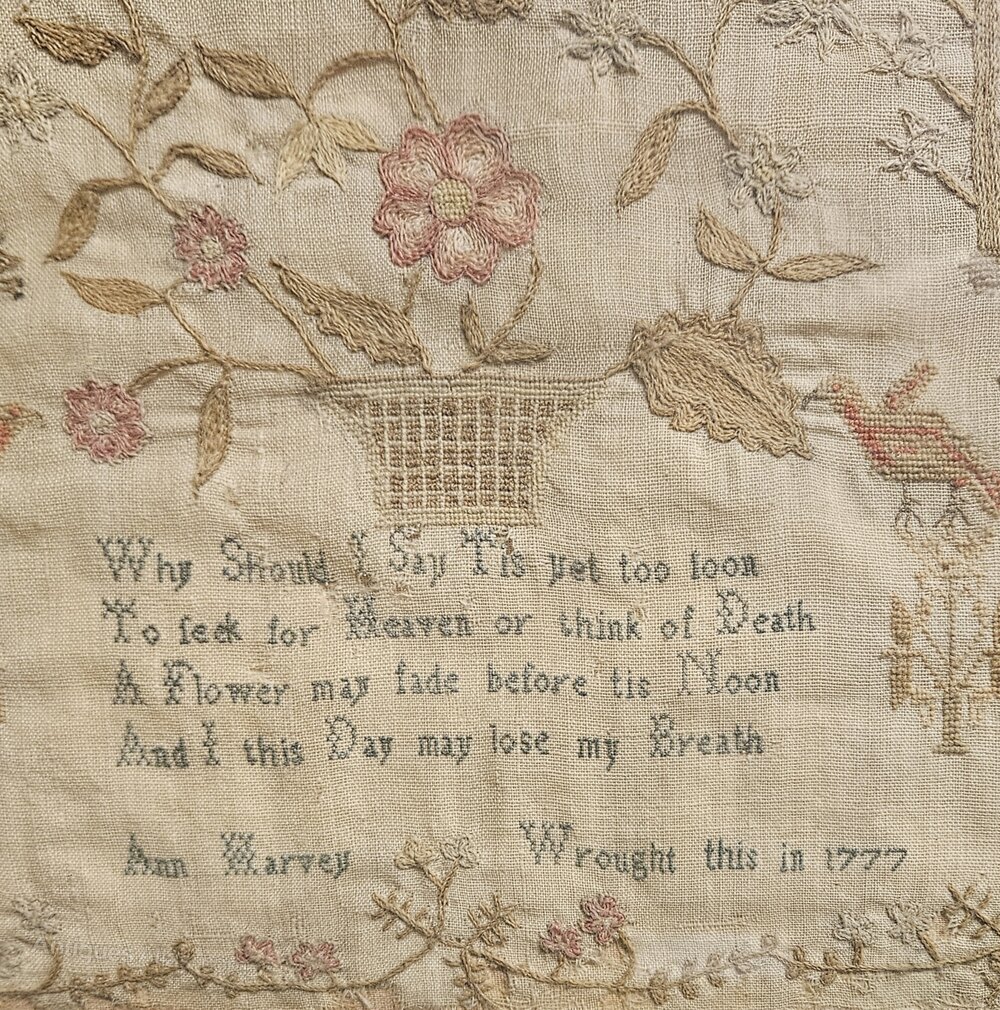 Why Should I Say Tis yet too ſoon
To ſeek for Heaven or think of Death
A Flower may fade before tis Noon
And I this Day may lose my Breath
Ann Harvey Wrought this in 1777